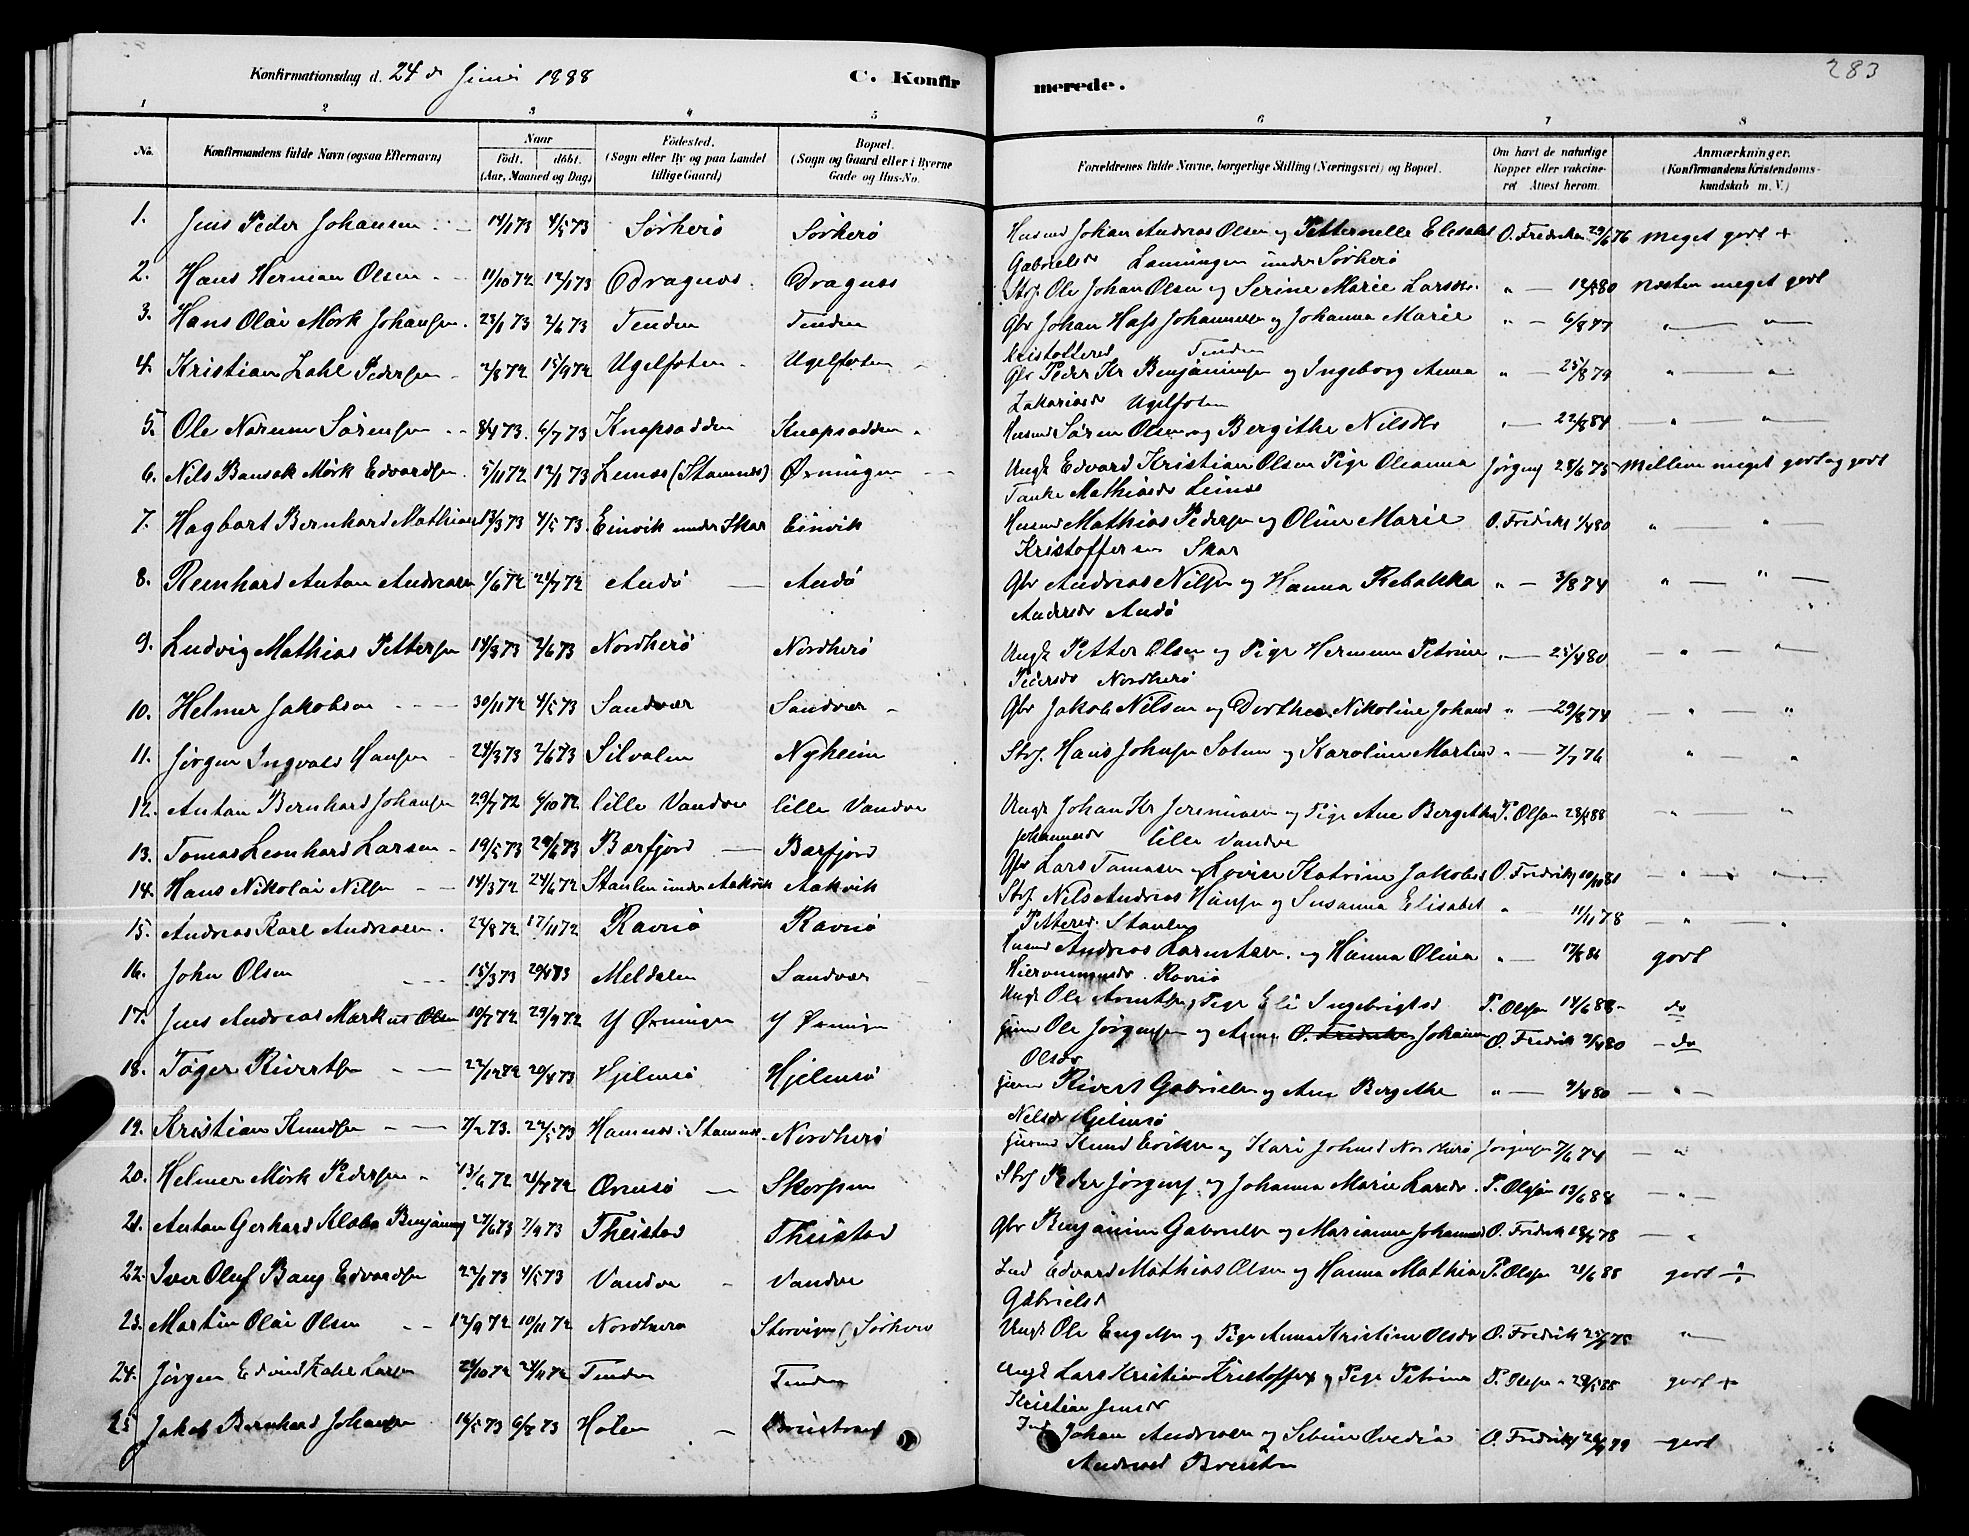 283
Konfirmationsdag d. 24de Juni 1888
C. Konfirmerede.
1 2 3 4 5 6 7 8
No. Konfirmandens fulde Navn (ogsaa Efternavn) Naar födt. döbt. (Aar, Maaned og Dag) Födested. (Sogn eller By og paa Landet tillige Gaard) Bopæl. (Sogn og Gaard eller i Byerne Gade og Hus-No. Forældrenes fulde Navne, borgerlige Stilling (Næringsvei) og Bopæl. Om havt de naturlige Kopper eller vakcineret Attest herom. Anmærkninger. (Konfirmandens Kristendomskundskab m. V.)
1. Jens Peder Johansen 14/1 73 4/5 73 Sørherø Sørherø Husmd Johan Andreas Olsen og Petternelle Elisabet O. Fredriksen 29/6 76 meget godt +
Gabrielsd under Sørherø
2. Hans Herman Olsen 11/10 72 12/1 73 Dragnæs Dragnæs Strf. Ole Johan Olsen og Serine Marie Larsdr. " — 80 næsten meget godt
3. Hans Olai Mörk Johansen 23/1 73 2/6 73 Tenden Tenden Gbr Johan Hass Johannesen og Johanna Marie " — 6/8 77 " "
Kristoffersd Tenden
4. Kristian Zahl Pedersen 2/8 72 15/9 72 Ugelfoten Ugelfoten Gbr Peder Kr Benjaminsen og Ingeborg Anna " — 25/8 79 " "
Zakariasdr Ugelfoten
5. Ole Norum Sörensen 8/4 73. 6/7 73 Knapsadden Knapsadden Husmd Sören Olsen og Bergithe Nilsdr " — 22/8 84 " "
6. Nils Bansak Mörk Edvardsen 5/11 72 12/1 73 Leines (Stamnes) Øxningen Ungk Edvard Kristian Olsen Pige Oleanna Jörgens 28/6 75 Mellem meget godt og godt
Tanke Mathiasdr Leines
7. Hagbart Bernhard Mathias 13/3 73 4/5 73 Einvik under Skar Einvik Husmd Mathias Pedersen og Oline Marie O. Fredriks 80 " "
Kristoffersen Skar
8. Reinhard Anton Andreasen 1/6 72 21/7 72 Andö Andö Gbr Andreas Nilsen og Hanna Rebekka " — 3/8 74 " "
Andersdr Andö
9. Ludvig Mathias Pettersen 14/3 73 2/6 73 Nordherö Nordherö Ungk Petter Olsen og Pige Hermine Petrine " — 25/4 80 " "
Pedersdr Nordherö
10. Helmer Jakobsen 30/11 72 4/5 73 Sandvær Sandvær Gbr Jakob Nilsen og Dorthea Nikoline Johansd " — 29/8 74 " "
11. Jörgen Ingvald Hansen 24/3 73 2/6 73 Silvalen Nyheim Strf. Hans Johnsen og Karoline Martinsd " — 7/7 76 " "
12. Antan Bernhard Johansen 29/7 72 6/10 72 lille Vandve lille Vandve Ungk Johan Kr Jeremiasen og Pige Ane Bergithe P. Olsen 28/5 88 " "
Johannesdr lille Vandve
13. Tomas Leonhard Larsen 19/5 73 29/6 73 Bærfjord Bærfjord Gbr Lars Tomasen og Lovise Katrine Jakobsd O. Fredriks 10/10 81 " "
14. Hans Nikolai Nilsen 14/3 72 24/6 72 Staulen under Aakvik Aakvik Strf. Nils Andreas Hansen og Susanna Elisabet " — 11/11 78 " "
Pettersd. Staulen
15. Andreas Karl Andreasen 22/8 72 17/11 72 Ravnö Ravnö Husmd Andreas og Hanna Olina " — 17/8 81 godt
Hieronimusdr. Ravnö
16. John Olsen 15/3 73 29/4 73 Meldalen Sandvær Ungk Ole Arntsen, Pige Eli Ingebrigtsd P. Olsen 14/6 88 do
17. Jens Andreas Markus Olsen 10/7 72 29/9 72 Y Øxningen Y Øxningen Husmd Ole Jörgensen og Anna O. Fredriksen Johanna O. Fredrik 80 do
Olsdr
18. Töger Rivertsen 22/12 72 20/4 73 Hjelmsö Hjelmsö Husmd Rivert Gabrielsen og Ane Bergithe " — 80 "
Nilsdr Hjelmsö
19. Kristian Knudsen 7/2 73. 22/5 73 Hamnes i Stamnes Nordherö Husmd Knud Eriksen og Kari Johnsd Nordherö Jörgensen 7/6 74 "
20. Helmer Mörk Pedersen 13/6 72 21/7 72 Ornesö Skorpen Strf Peder Jörgens. og Johanna Marie Larsdr. P. Olsen 13/6 88 "
21. Antan Gerhard Klæbo Benjamins 27/6 73 7/9 73 Theistad Theistad Gbr Benjamin Gabrielsen og Marianna Johannesd O. Fredrik 78 "
22. Iver Oluf Bang Edvardsen 22/1 73 4/5 73 Vandve Vandve Ind Edvard Mathias Olsen og Hanna Mathia P. Olsen 21/6 88 godt ÷
Gabrielsd
23. Martin Olai Olsen 12/9 72 10/11 72 Nordherö Storvigen (Sørherö Ungk Ole Engelsen og Pige Anna Kristine Olsdr O. Fredrik 75 "
24. Jörgen Edvind Zahl Larsen 28/10 72 24/11 72 Tenden Tenden Ungk Lars Kristian Kristoffers og Pige Petrina P. Olsen 88 godt +
Kristian Jensdr
25 Jakob Bernhard Johansen 14/5 73 6/8 73 Holen Breistrand Ind Johan Andreasen og Sebine Ovedia O. Fredriks 79 godt
Andreasd Breistr